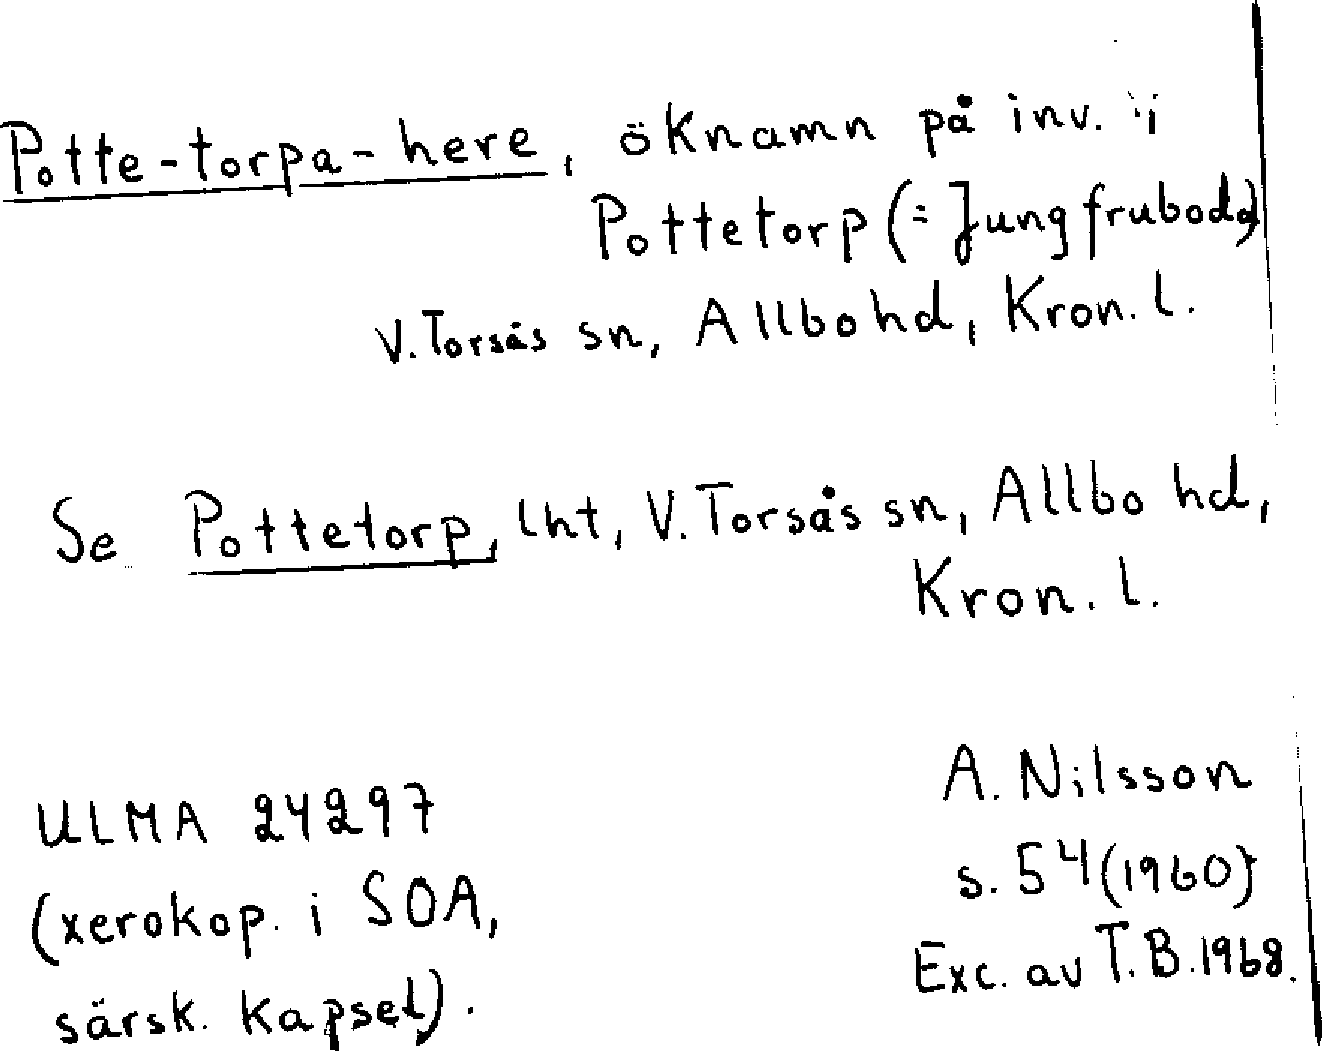 Potte-torpa-here, öknamn på inv. i
Pottetorp (= Jungfruboda)
V. Torsås sn, Allbo hd, Kron. l.
Se Pottetorp, lht, V. Torsås sn, Allbo hd,
Kron. l.
A. Nilsson
s. 54 (1960)
Exc. av T.B. 1968.
ULMA 24297
(xerokop. i SOA,
särsk. kapsel).